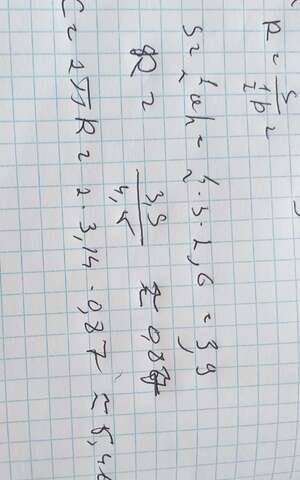 R = S / ½p =
S = ½ah = ½ · 3 · 2,6 = 3,9
R = 3,9 / 4,5 ≈ 0,87
C = 2πR = 2 · 3,14 · 0,87 ≈ 5,46